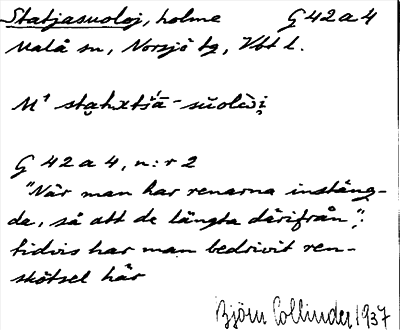 Statjasuoloj, holme G 42 a 4
Malå sn, Norsjö tg, Vbt l.
M¹
G 42 a 4, n:r 2
"När man har renarna instäng-
da, så att de längta därifrån";
tidvis har man bedrivit ren-
skötsel här
Björn Collinder 1937